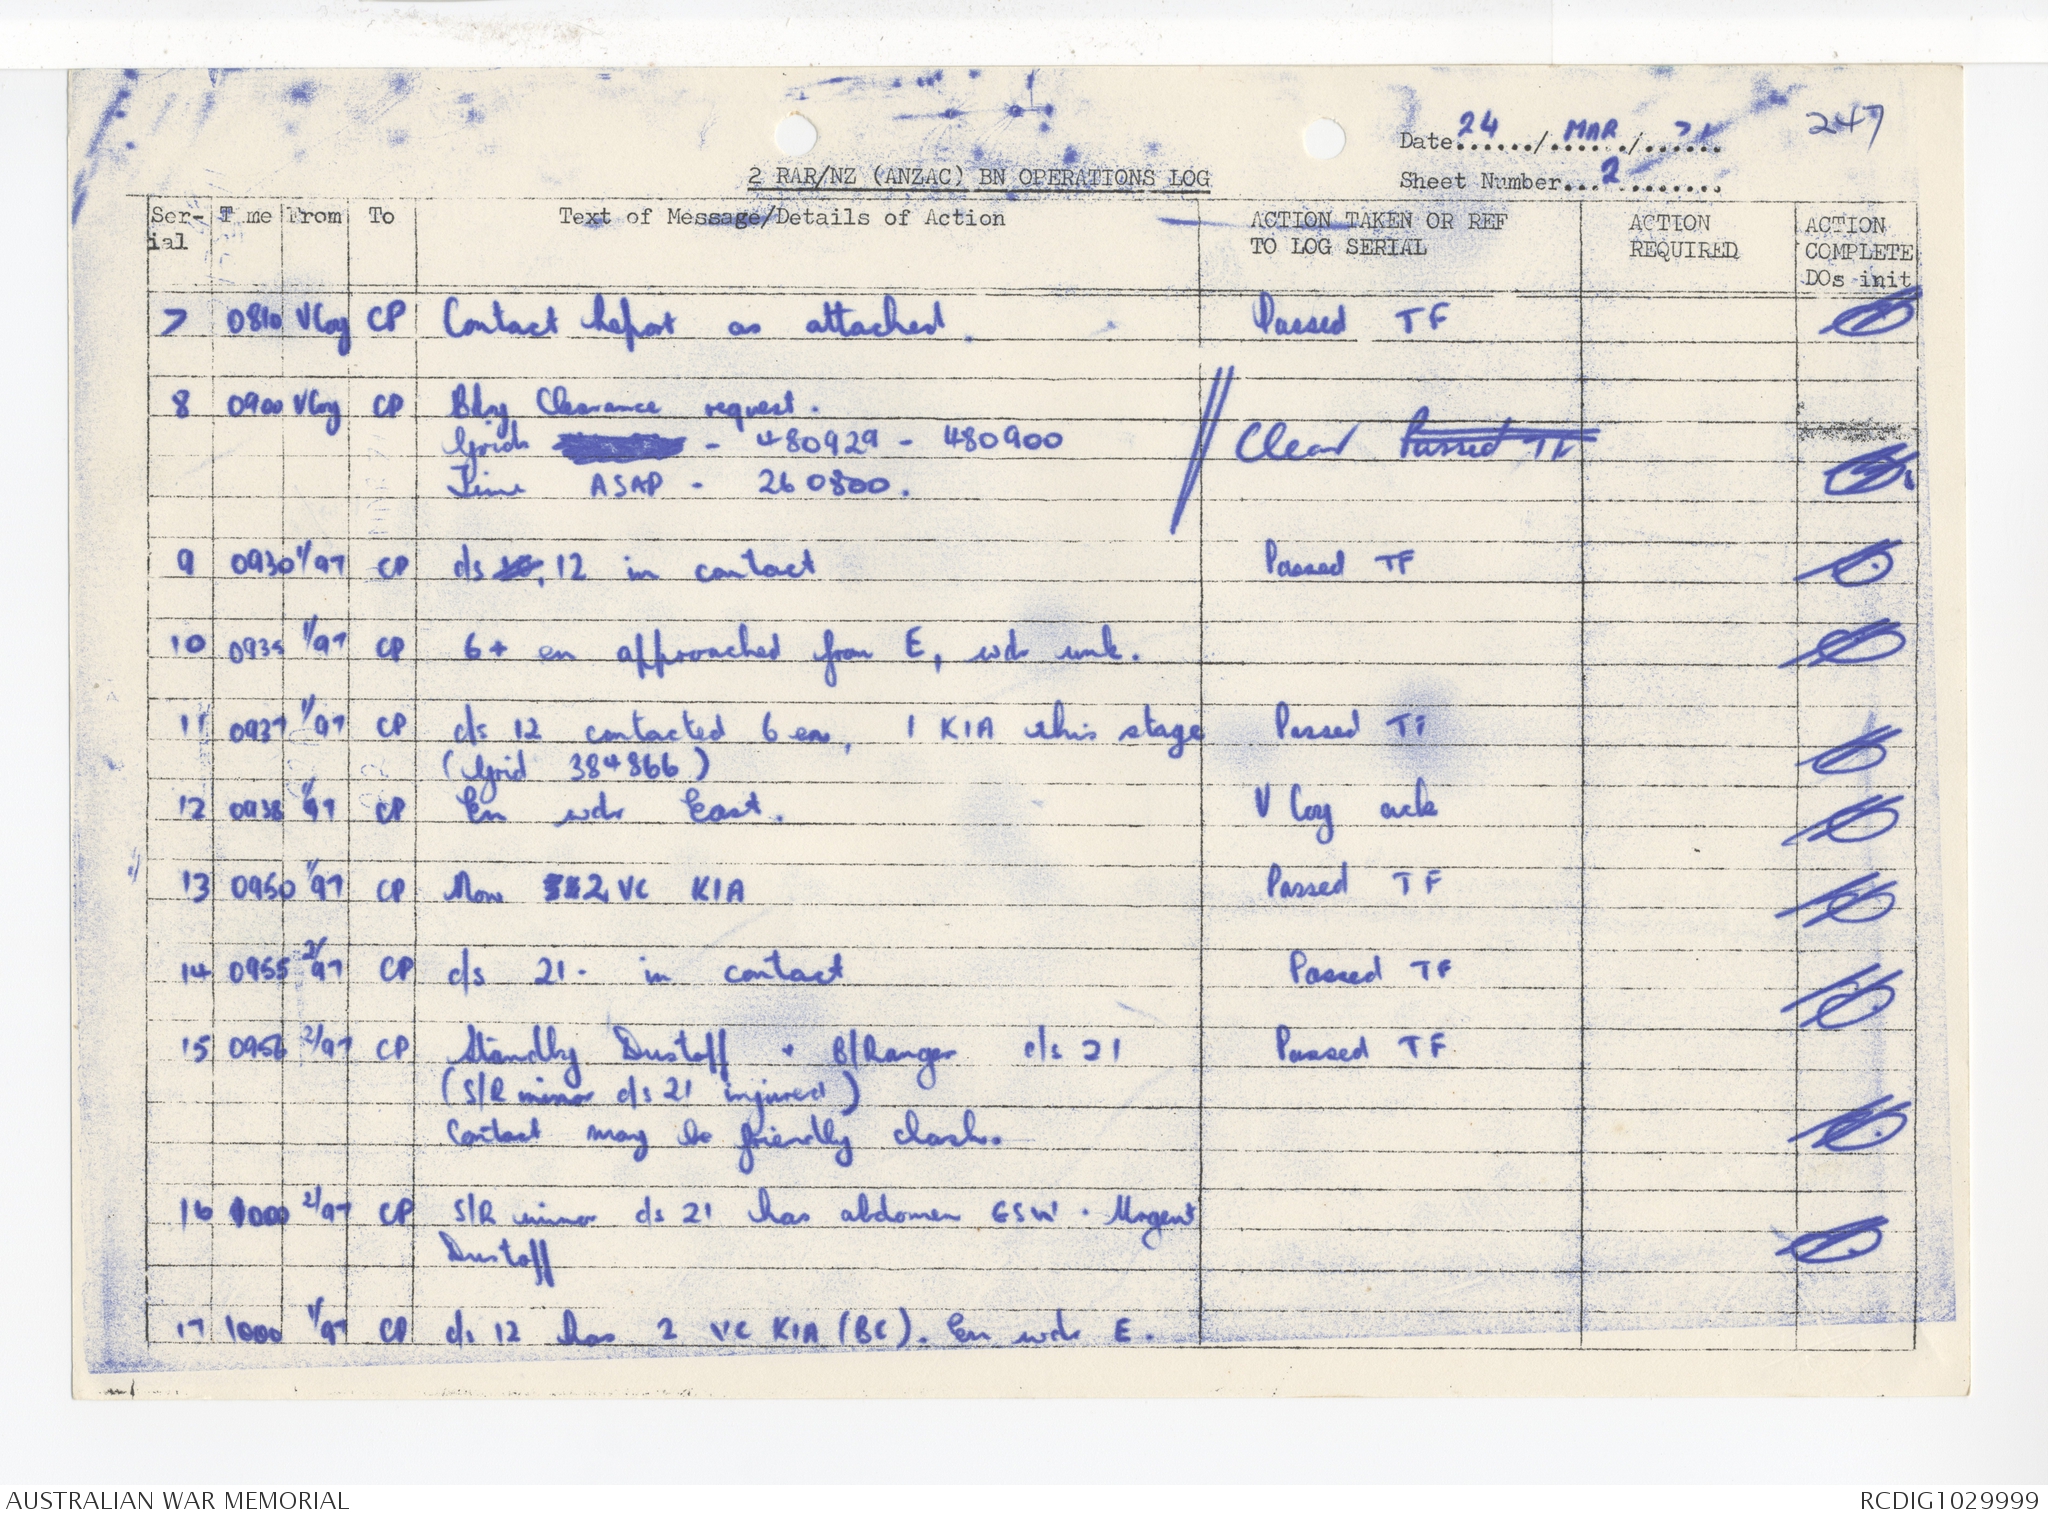 247
Date 24 / MAR / 71
Sheet Number 2
2 RAR/NZ (ANZAC) BN OPERATIONS LOG
Ser-ial Time From To Text of Message/Details of Action ACTION TAKEN OR REF TO LOG SERIAL ACTION REQUIRED ACTION COMPLETE DOs init
7 0810 VCoy CP Contact Report as attached. Passed TF
8 0900 VCoy CP Bdry Clearance request.
Grids - 480929 - 480900 Clear Passed TF
Time ASAP - 260800.
9 0930 1/97 CP c/s 12 in contact Passed TF
10 0935 1/97 CP 6+ en approached from E, wdr unk.
11 0937 1/97 CP c/s 12 contacted 6 en, 1 KIA this stage Passed TF
(Grid 384866)
12 0938 1/97 CP En wdr East. V Coy ack
13 0950 1/97 CP Now 2 VC KIA Passed TF
14 0955 2/97 CP c/s 21. in contact Passed TF
15 0956 2/97 CP Standby Dustoff + B/Ranger c/s 21 Passed TF
(S/R minor c/s 21 injured)
Contact may be friendly clash.
16 1000 2/97 CP S/R minor c/s 21 has abdomen GSW. Urgent
Dustoff
17 1000 1/97 CP c/s 12 has 2 VC KIA (BC). En wdr E.
AUSTRALIAN WAR MEMORIAL
RCDIG1029999